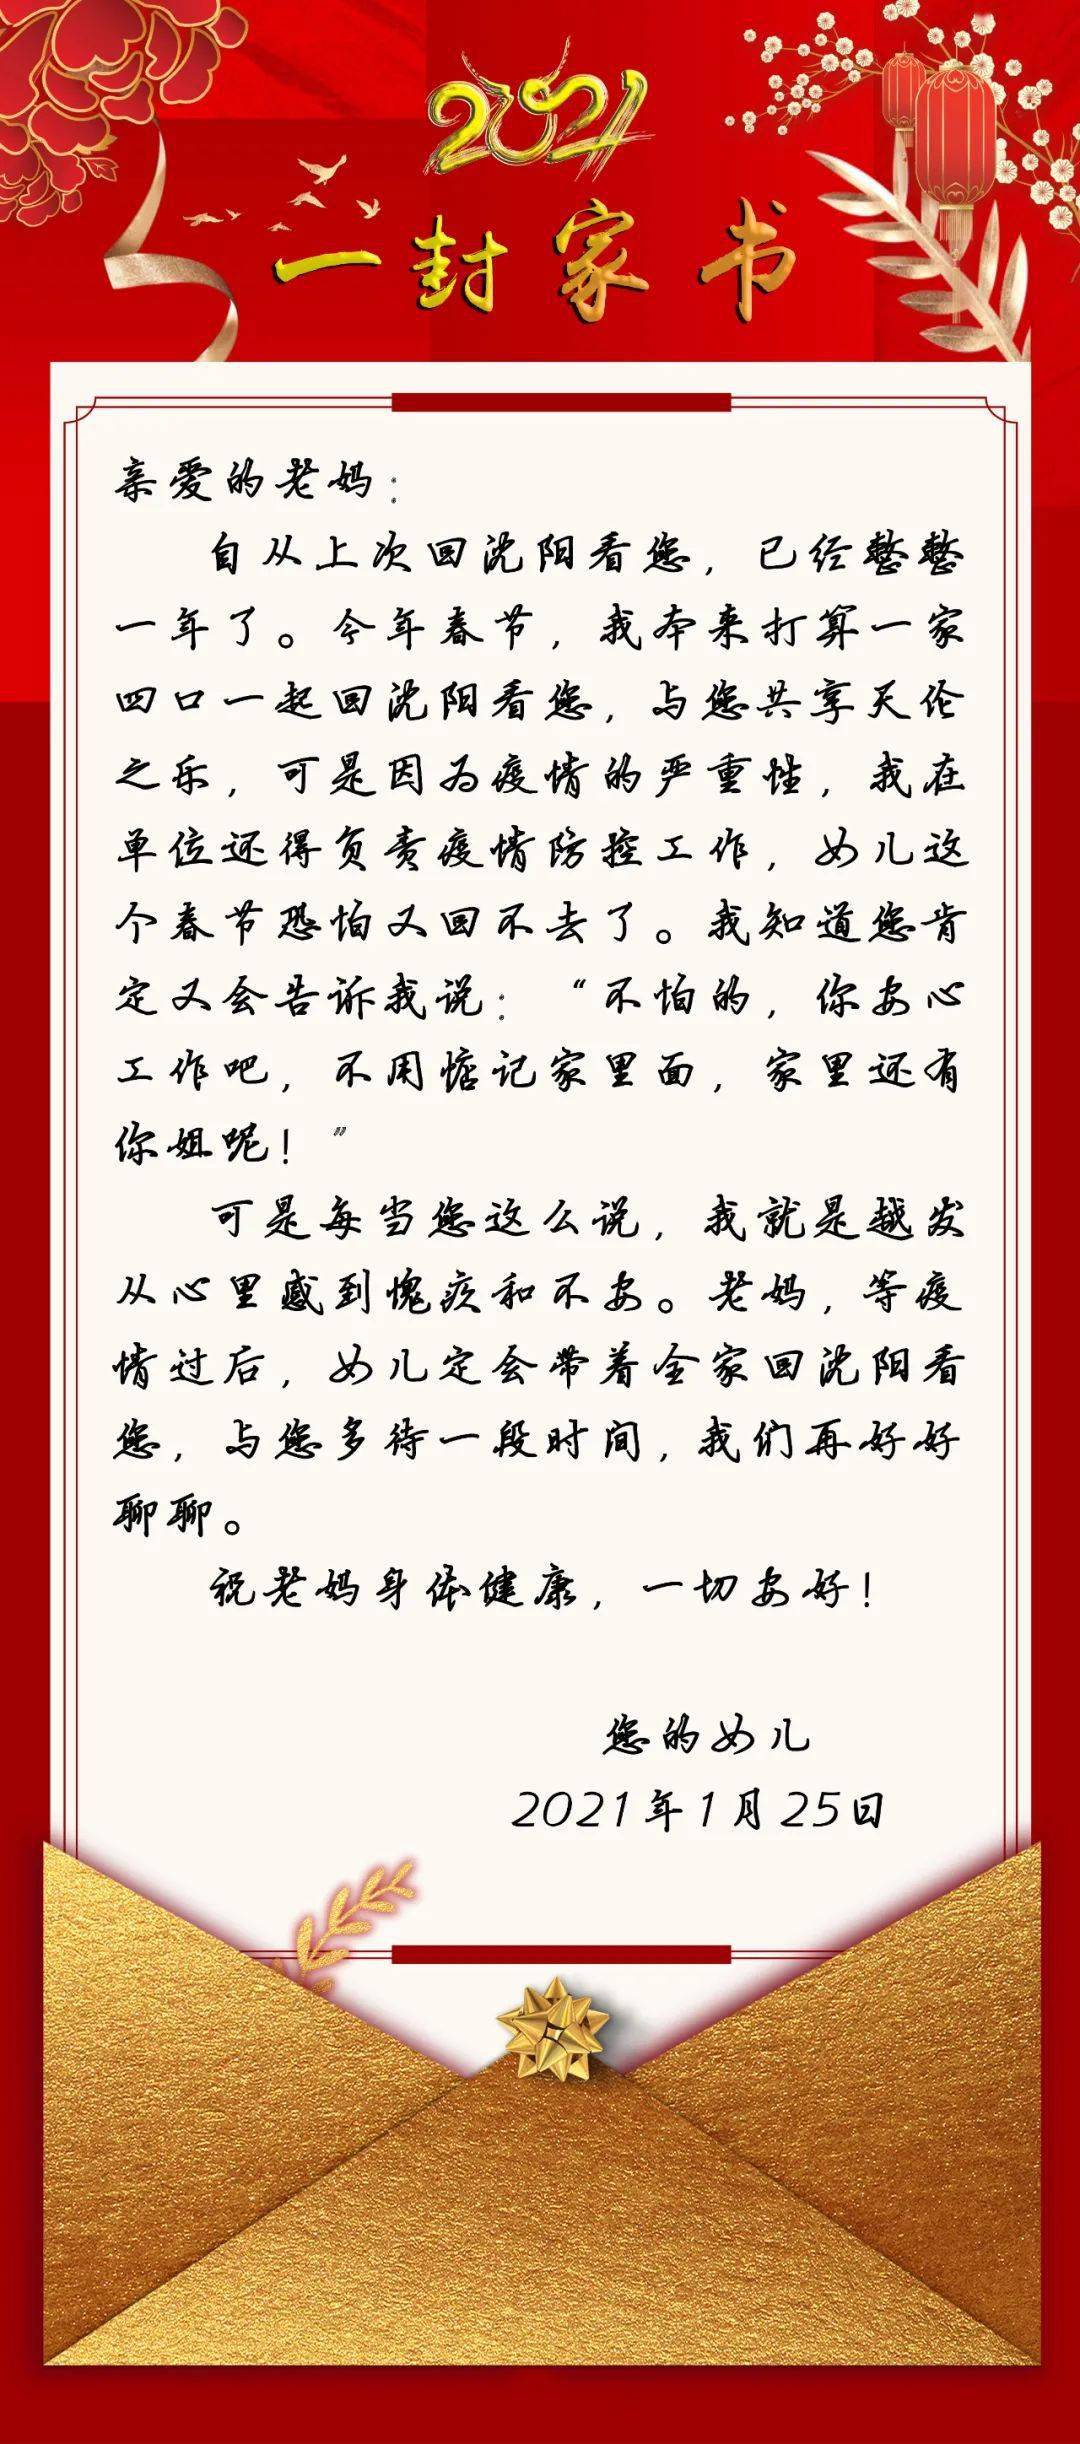 2021
一封家书
亲爱的老妈：
自从上次回沈阳看您，已经整整
一年了。今年春节，我本来打算一家
四口一起回沈阳看您，与您共享天伦
之乐，可是因为疫情的严重性，我在
单位还得负责疫情防控工作，女儿这
个春节恐怕又回不去了。我知道您肯
定又会告诉我说：“不怕的，你安心
工作吧，不用惦记家里面，家里还有
你姐呢！”
可是每当您这么说，我就是越发
从心里感到愧疚和不安。老妈，等疫
情过后，女儿定会带着全家回沈阳看
您，与您多待一段时间，我们再好好
聊聊。
祝老妈身体健康，一切安好！
您的女儿
2021年1月25日